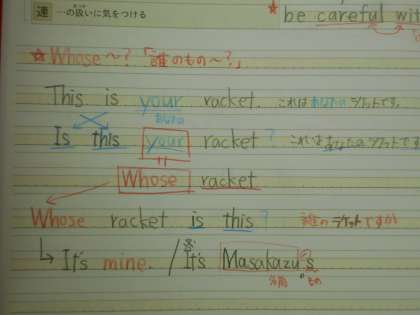 連 …の扱いに気をつける
★ be careful wit
★ Whose ～? 「誰のもの～?」
This is your racket. これはあなたのラケットです。
Is this your racket? これはあなたのラケットです
Whose racket
Whose racket is this? 誰のラケットですか
It's mine. / It's Masakazu's
名前 もの